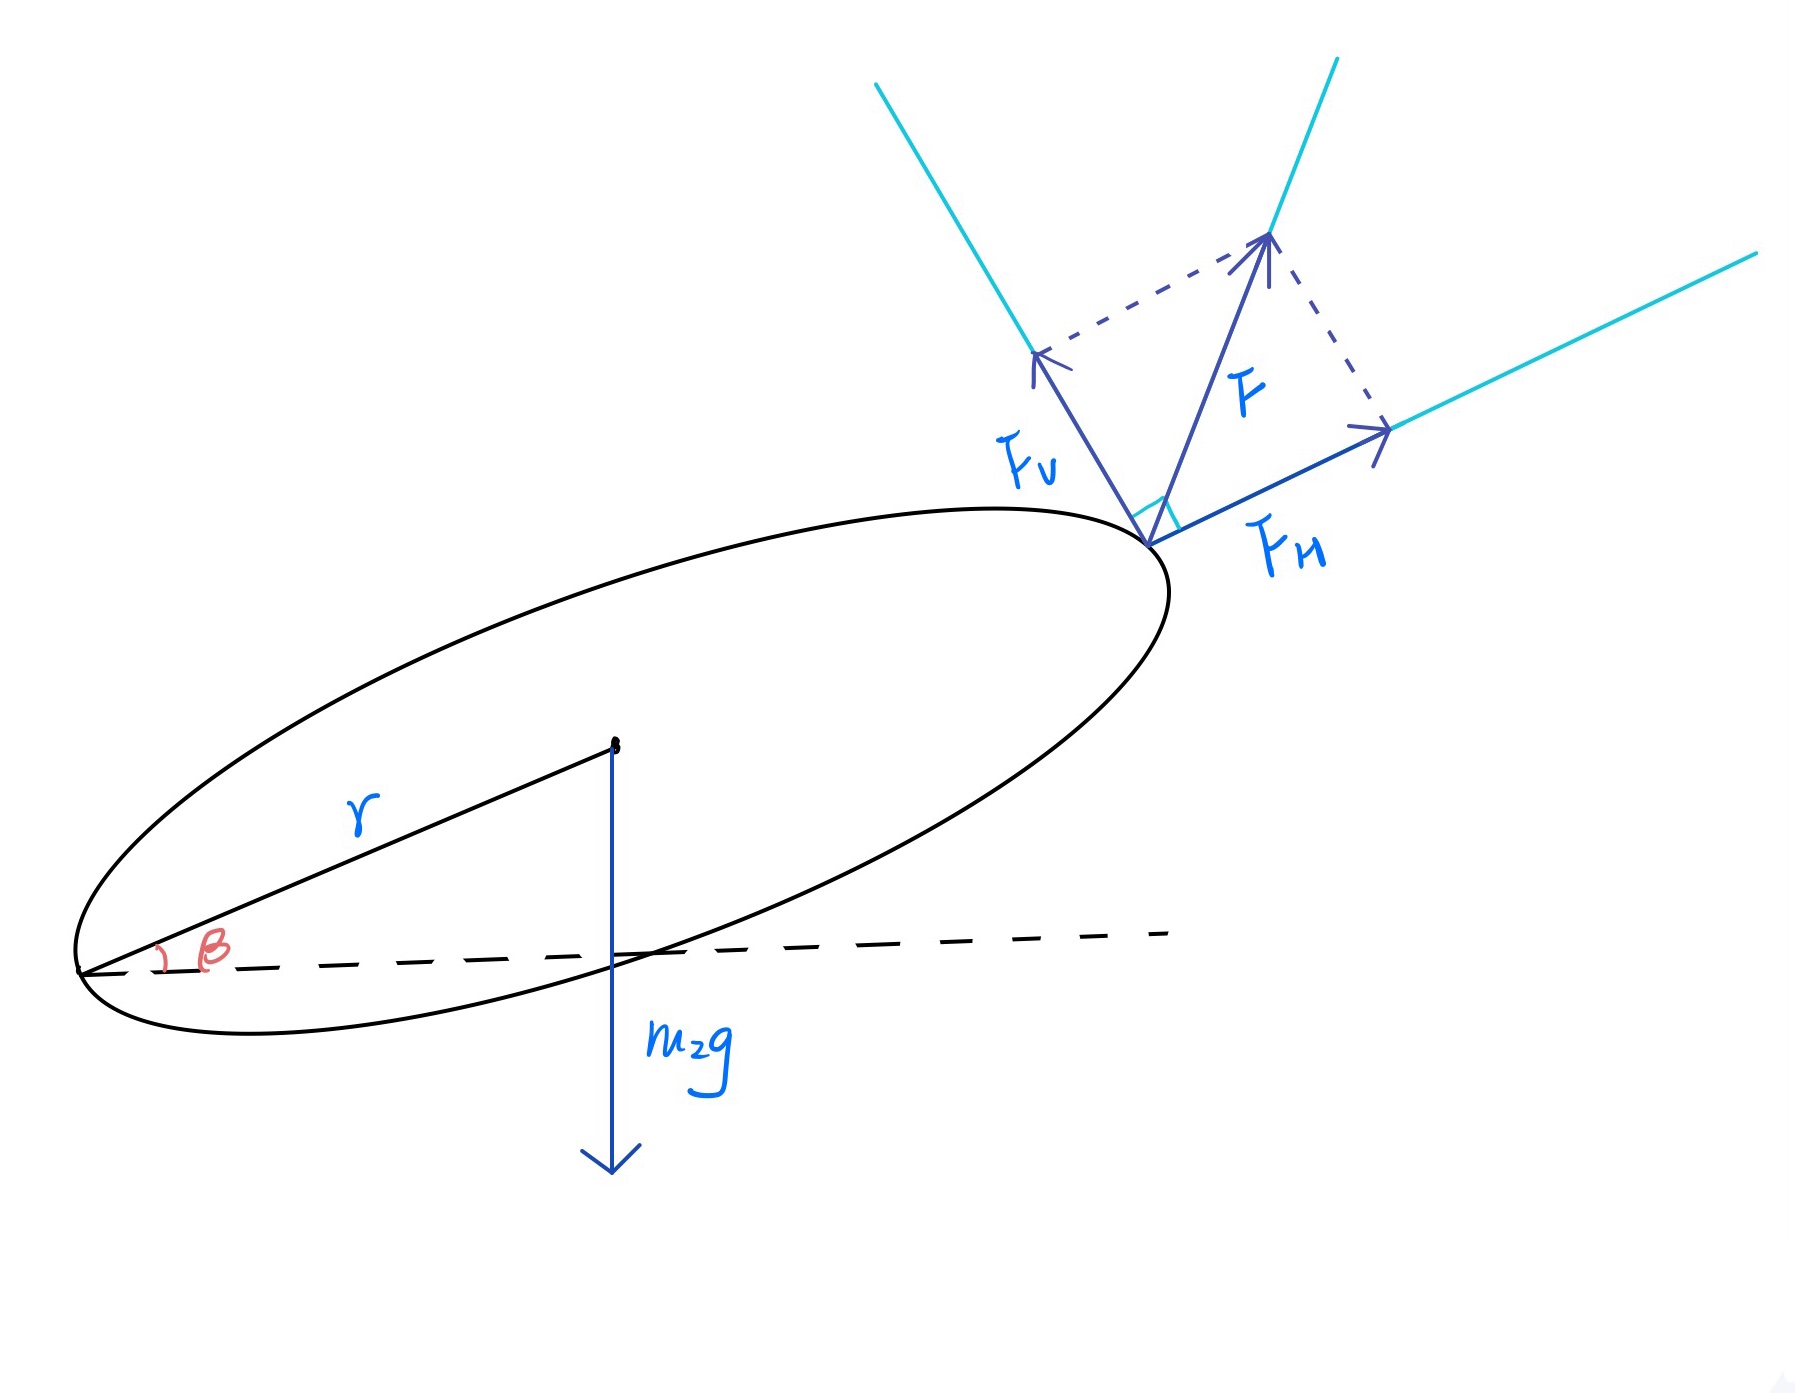 F
Fv
FH
r
β
m₂g